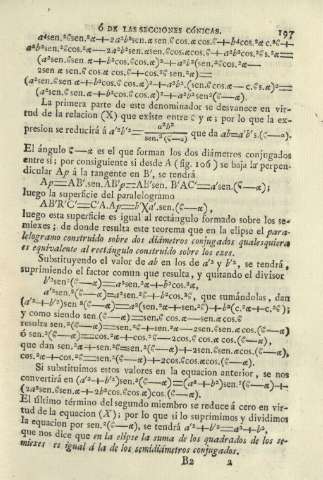 Ó DE LAS SECCIONES CÓNICAS. 197
a⁴sen.²ϐcos.²α+2a²b²sen.α sen.ϐ cos.α cos.ϐ+b⁴cos.²α c.²ϐ+
a²b²sen.²ϐcos.²α—2a²b²sen.α sen.ϐ cos.α cos.ϐ
(a²sen.ϐ sen.α+b²cos.ϐ cos.α)²+a²b²(sen.²ϐ cos.²α—
2sen α sen.ϐ cos α cos.ϐ+cos.²ϐ sen.²α)=
(a²sen.ϐ sen.α+b²cos.ϐ cos α)²+a²b².(sen.ϐ cos.α—c.ϐ s.α)²=
(a²sen.ϐ sen.α+b²cos.ϐ cos.α)²+a²b²sen²(ϐ—α).
La primera parte de este denominador se desvanece en vir-
tud de la relacion (X) que existe entre ϐ y α; por lo que la ex-
presion se reducirá á a'²b'²= a²b² / sen.²(ϐ—α) que da ab=a'b's.(ϐ—α).
El ángulo ϐ—α es el que forman los dos diámetros conjugados
entre sí; por consiguiente si desde A (fig. 106) se baja la perpen-
dicular Ap á la tangente en B', se tendrá
Ap=AB'.sen.AB'p=Ab'sen. B'AC'=a'sen.(ϐ—α);
luego la superficie del paralelogramo
AB'R'C'=C'A.Ap=b'Xa'.sen.(ϐ—α),
luego esta superficie es igual al rectángulo formado sobre los se-
miexes; de donde resulta este teorema que en la elipse el para-
lelogramo construido sobre dos diámetros conjugados qualesquiera
es equivalente al rectángulo construido sobre los exes.
Substituyendo el valor de ab en los de a'² y b'², se tendrá,
suprimiendo el factor comun que resulta, y quitando el divisor
b'²sen²(ϐ—α)=a²sen.²α+b²cos.²α,
a'²sen.²(ϐ—α)=a²sen.²ϐ+b²cos.²ϐ, que sumándolas, dan
(a'²+b'²)sen.²(ϐ—α)=a²(sen.²α+sen.²ϐ)+b²(c.²α+c.²ϐ);
y como siendo sen.(ϐ—α)=sen.ϐ cos.α—sen.α cos.ϐ
resulta sen.²(ϐ—α)=sen.²ϐ+sen.²α—2sen.ϐ sen.α cos.(ϐ—α),
ó sen.²(ϐ—α)=cos.²α+cos.²ϐ—2cos.ϐ cos.α cos.(ϐ—α),
que dan sen.²α+sen.²ϐ=sen.²(ϐ—α)+2sen.ϐ sen.α cos.(ϐ—α),
cos.²α+cos.²ϐ=sen.²(ϐ—α)+2cos.ϐ cos.α cos.(ϐ—α).
Si substituimos estos valores en la equacion anterior, se nos
convertirá en (a'²+b'²)sen.²(ϐ—α)=(a²+b²)sen.²(ϐ—α)+
(2a²sen.ϐ sen.α+2b²cos.ϐ cos.α)cos.(ϐ—α).
El último término del segundo miembro se reduce á cero en vir-
tud de la equacion (X); por lo que si lo suprimimos y dividimos
la equacion por sen.²(ϐ—α), se tendrá a'²+b'²=a²+b²,
que nos dice que en la elipse la suma de los quadrados de los se-
miexes es igual á la de los semidiámetros conjugados.
B2 2